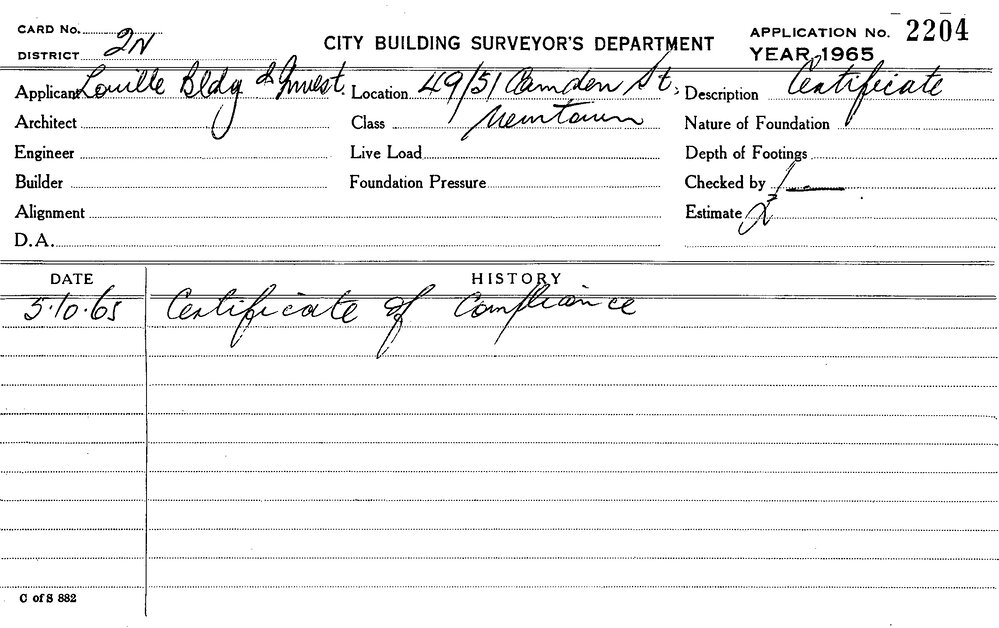 CARD No.
DISTRICT 2N
CITY BUILDING SURVEYOR'S DEPARTMENT
APPLICATION No. 2204
YEAR, 1965
Applicant Louille Bldg & Invest. Location 49/51 Camden St, Newtown Description Certificate
Architect Class Nature of Foundation
Engineer Live Load Depth of Footings
Builder Foundation Pressure Checked by
Alignment Estimate £
D.A.
DATE HISTORY
5.10.65 Certificate of Compliance
C of S 882